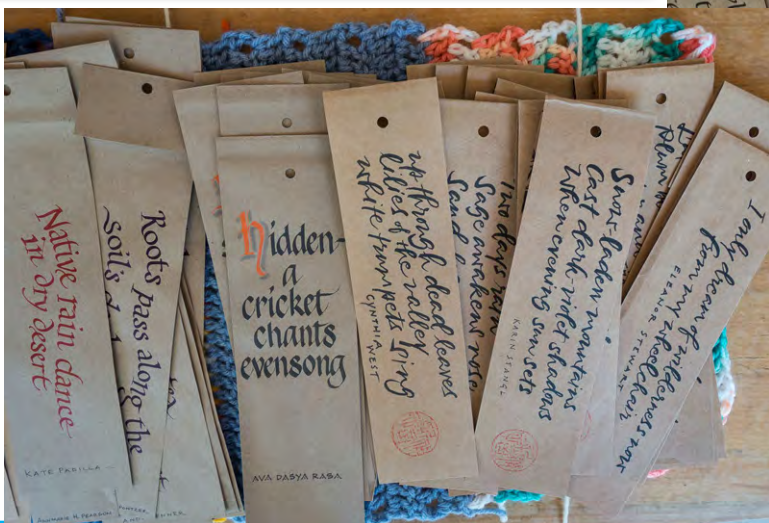 Native rain dance
in dry desert
KATE PADILLA
Roots pass along the
soil's
hidden-
a
cricket
chants
evensong
AVA DASYA RASA
up through dead leaves
lilies of the valley
white trumpets I sing
CYNTHIA WEST
Two days rain
Sage awakens nose
Sand
Snow-laden mountains
Cast dark violet shadows
When evening sun sets
KARIN STANGL
I only dream of wilderness now
from my wheelchair
ELEANOR STEWART